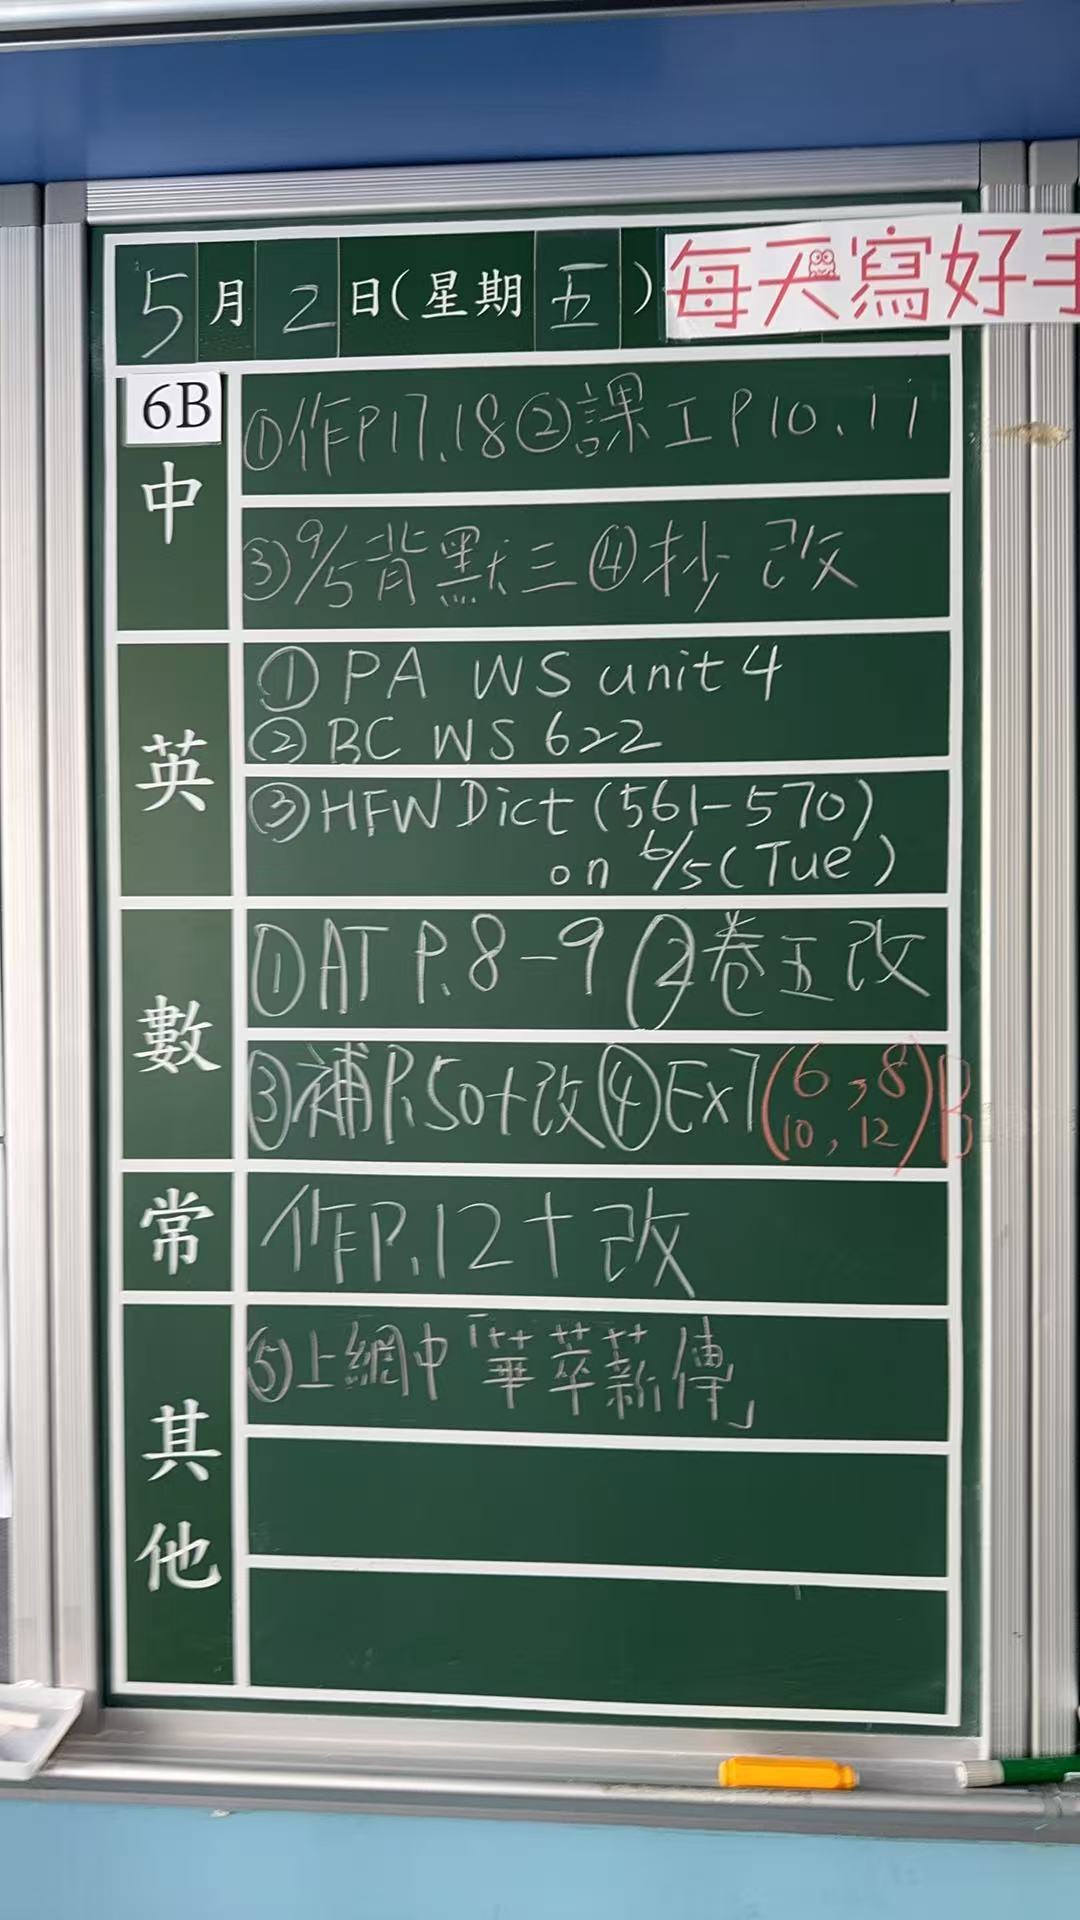 5月2日(星期五)
每天寫好手
6B
中
①作P17.18②課工P10.11
③9/5背默三④抄改
英
① PA WS unit 4
② BC WS 622
③HFW Dict (561-570)
on 6/5(Tue)
數
①AT P.8-9 ②卷五改
③補P.50+改④Ex7(6,8
10,12)B
常
作P.12+改
其他
⑤上網中「華萃薪傳」